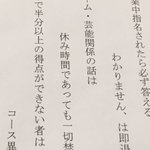 業中指名されたら必ず答える
わかりません、は即退
ム・芸能関係の話は
休み時間であっても一切禁
で半分以上の得点ができない者は
コース異